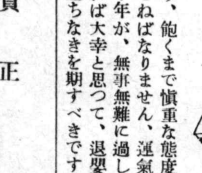 、飽くまで愼重な態度
ねばなりません、運氣
年が、無事無難に過し
ば大幸と思つて、退嬰
ちなきを期すべきです
正